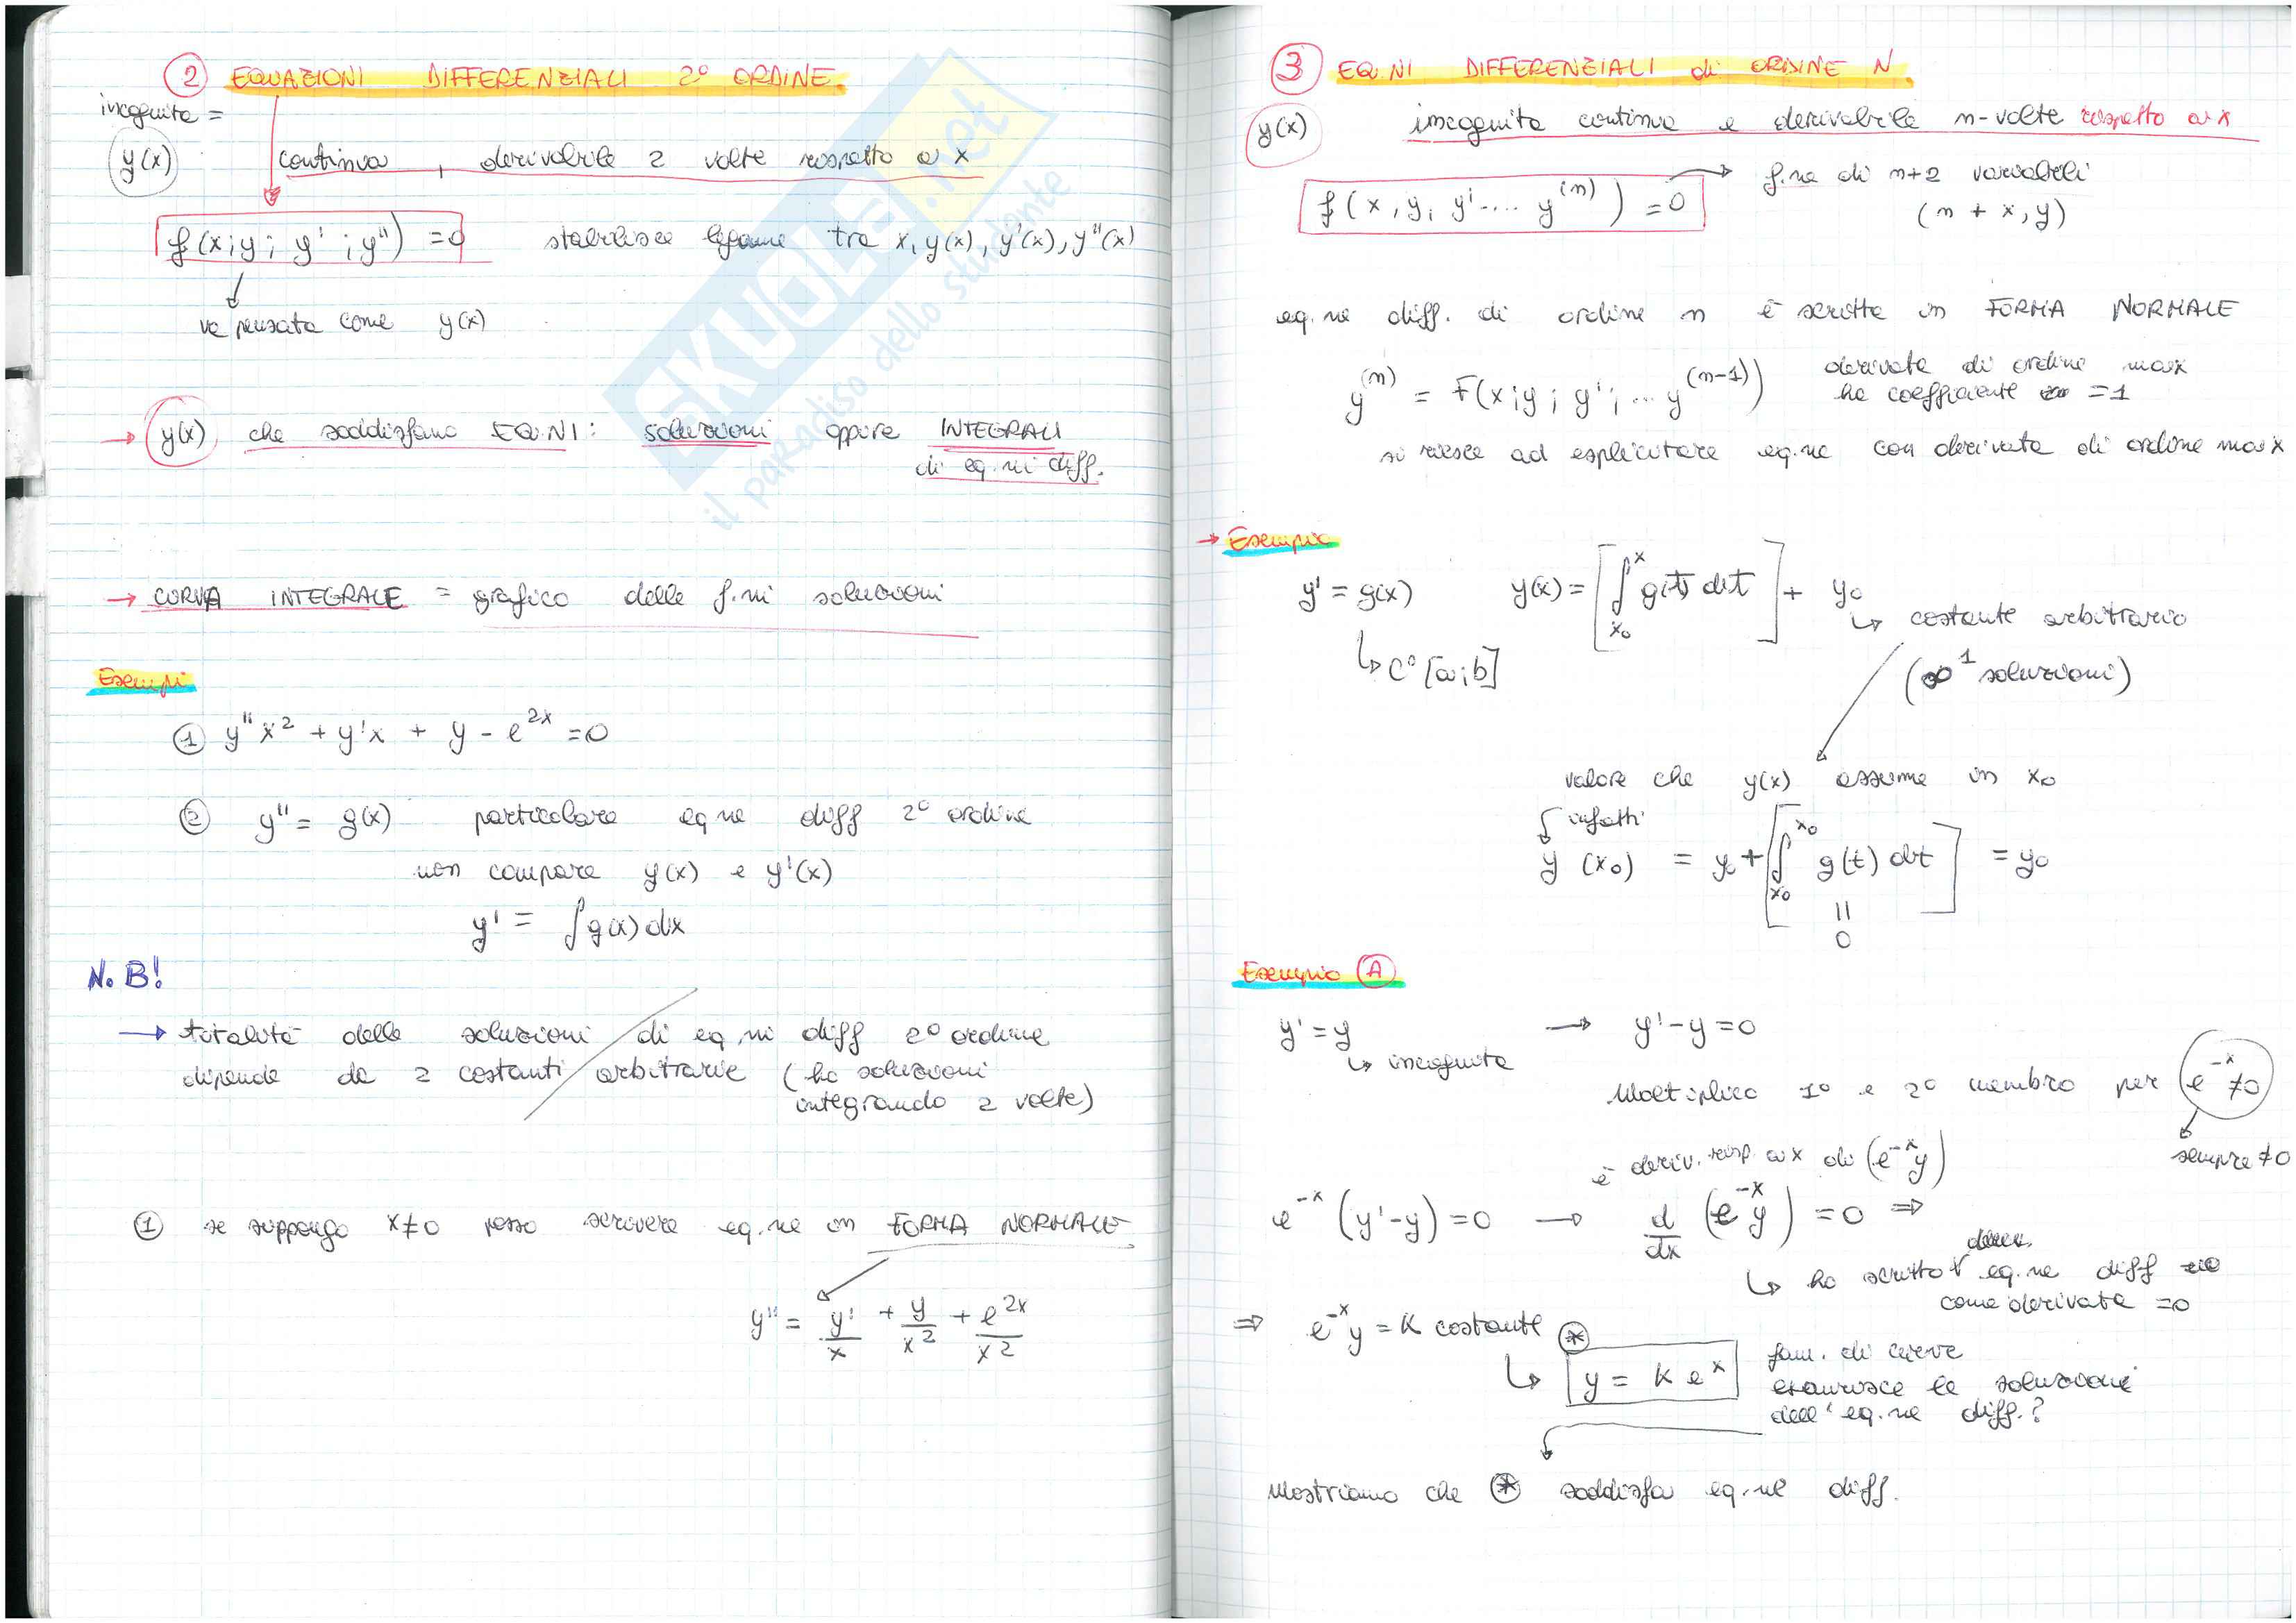 ② EQUAZIONI DIFFERENZIALI 2° ORDINE.
incognita =
y(x)
continua, derivabile 2 volte rispetto a x
f(x; y; y'; y'') = 0 stabilisce legame tra x, y(x), y'(x), y''(x)
va pensata come y(x)
→ y(x) che soddisfano EQ.NI: soluzioni oppure INTEGRALI
di eq.ni diff.
→ CURVA INTEGRALE = grafico delle f.ni soluzioni
Esempi
① y''x² + y'x + y - e^{2x} = 0
② y'' = g(x) particolare eq.ne diff 2° ordine
non compare y(x) e y'(x)
y' = ∫g(x)dx
N.B!
→ totalità delle soluzioni di eq.ni diff 2° ordine
dipende da 2 costanti arbitrarie (ho soluzioni
integrando 2 volte)
① se suppongo x≠0 posso scrivere eq.ne in FORMA NORMALE
y'' = y'/x + y/x² + e^{2x}/x²
③ EQ.NI DIFFERENZIALI di ORDINE N.
y(x) incognita continua e derivabile n-volte rispetto a x
f(x, y, y'.... y^{(n)}) = 0 → f.ne di n+2 variabili
(n + x, y)
eq.ne diff. di ordine n è scritta in FORMA NORMALE
y^{(n)} = F(x; y; y'; ... y^{(n-1)}) derivata di ordine max
ha coefficiente = 1
si riesce ad esplicitare eq.ne con derivata di ordine max
→ Esempio
y' = g(x) y(x) = [∫_{x₀}^{x} g(t) dt] + y₀
↳ costante arbitraria
↳ C°[a; b]
(∞¹ soluzioni)
valore che y(x) assume in x₀
infatti
y(x₀) = y₀ + [∫_{x₀}^{x₀} g(t) dt] = y₀
||
0
Esempio Ⓐ
y' = y → y' - y = 0
↳ incognita
Moltiplico 1° e 2° membro per e^{-x} ≠ 0
sempre ≠ 0
è deriv. risp. a x di (e^{-x}y)
e^{-x}(y' - y) = 0 → d/dx (e^{-x}y) = 0 ⇒
↳ ho scritto eq.ne diff
come derivata = 0
⇒ e^{-x}y = K costante
⊛
↳ y = K e^x fam. di curve
esaurisce le soluzioni
dell'eq.ne diff.?
Mostriamo che ⊛ soddisfa eq.ne diff.
SKUOLA.net
il paradiso dello studente